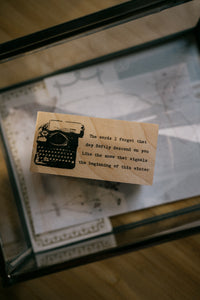 The words I forget that
day Softly descend on you
Like the snow that signals
the beginning of this winter